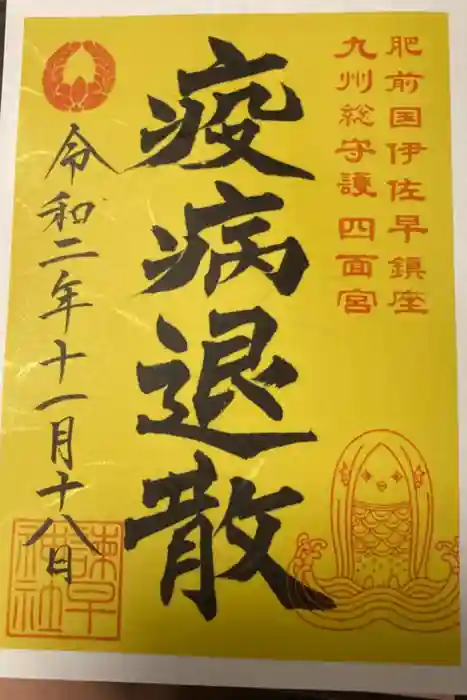 肥前国伊佐早鎮座
九州総守護 四面宮
疫病退散
令和二年十一月十八日
諫早
神社